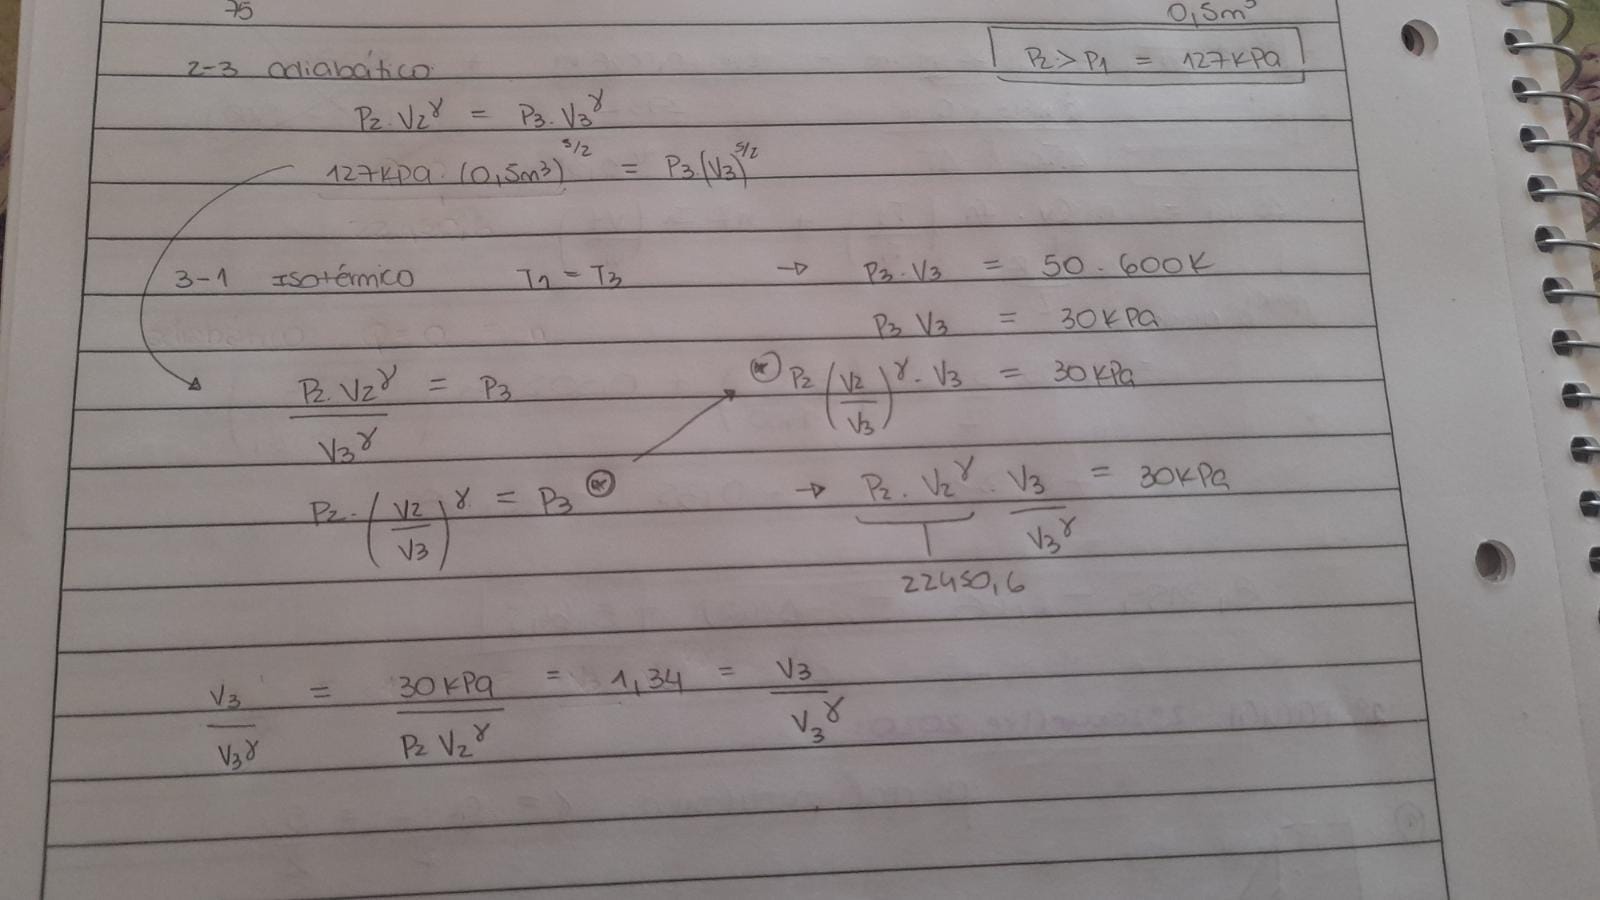 75
0,5m³
P2 > P1 = 127KPa
2-3 adiabático.
P2 . V2^γ = P3 . V3^γ
127KPa . (0,5m³)^5/2 = P3.(V3)^5/2
3-1 Isotérmico T1 = T3 → P3.V3 = 50.600K
P3 V3 = 30KPa
P2 . V2^γ / V3^γ = P3
⊛ P2 (V2/V3)^γ . V3 = 30KPa
P2 . (V2/V3)^γ = P3 ⊛
→ P2 . V2^γ . V3/V3^γ = 30KPa
22450,6
V3/V3^γ = 30KPa/P2 V2^γ = 1,34 = V3/V3^γ